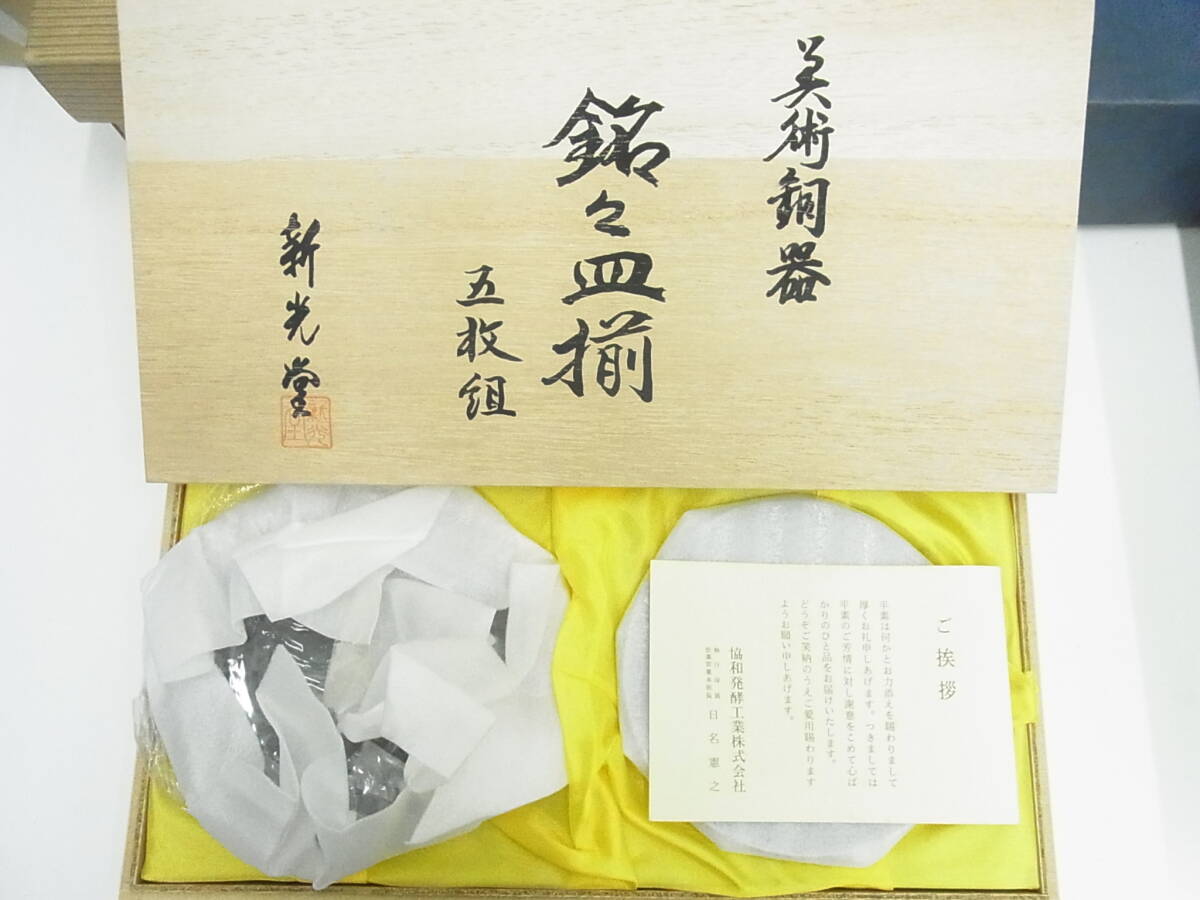 美術銅器
銘々皿揃
五枚組
新光堂
ご挨拶
平素は何かとお力添えを賜わりまして
厚くお礼申しあげます。つきましては
平素のご芳情に対し謝意をこめて心ば
かりのひと品をお届けいたします。
どうぞご笑納のうえご愛用賜わります
ようお願い申しあげます。
協和発酵工業株式会社
執行役員
医薬営業本部長
日名憲之